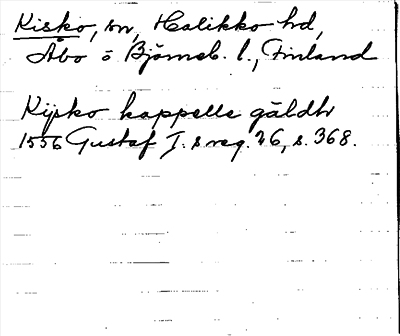 Kisko, sn, Halikko hd,
Åbo o Björneb. l., Finland
Kijsko kappelle gäldhr
1556 Gustaf I. s reg. 26, s. 368.